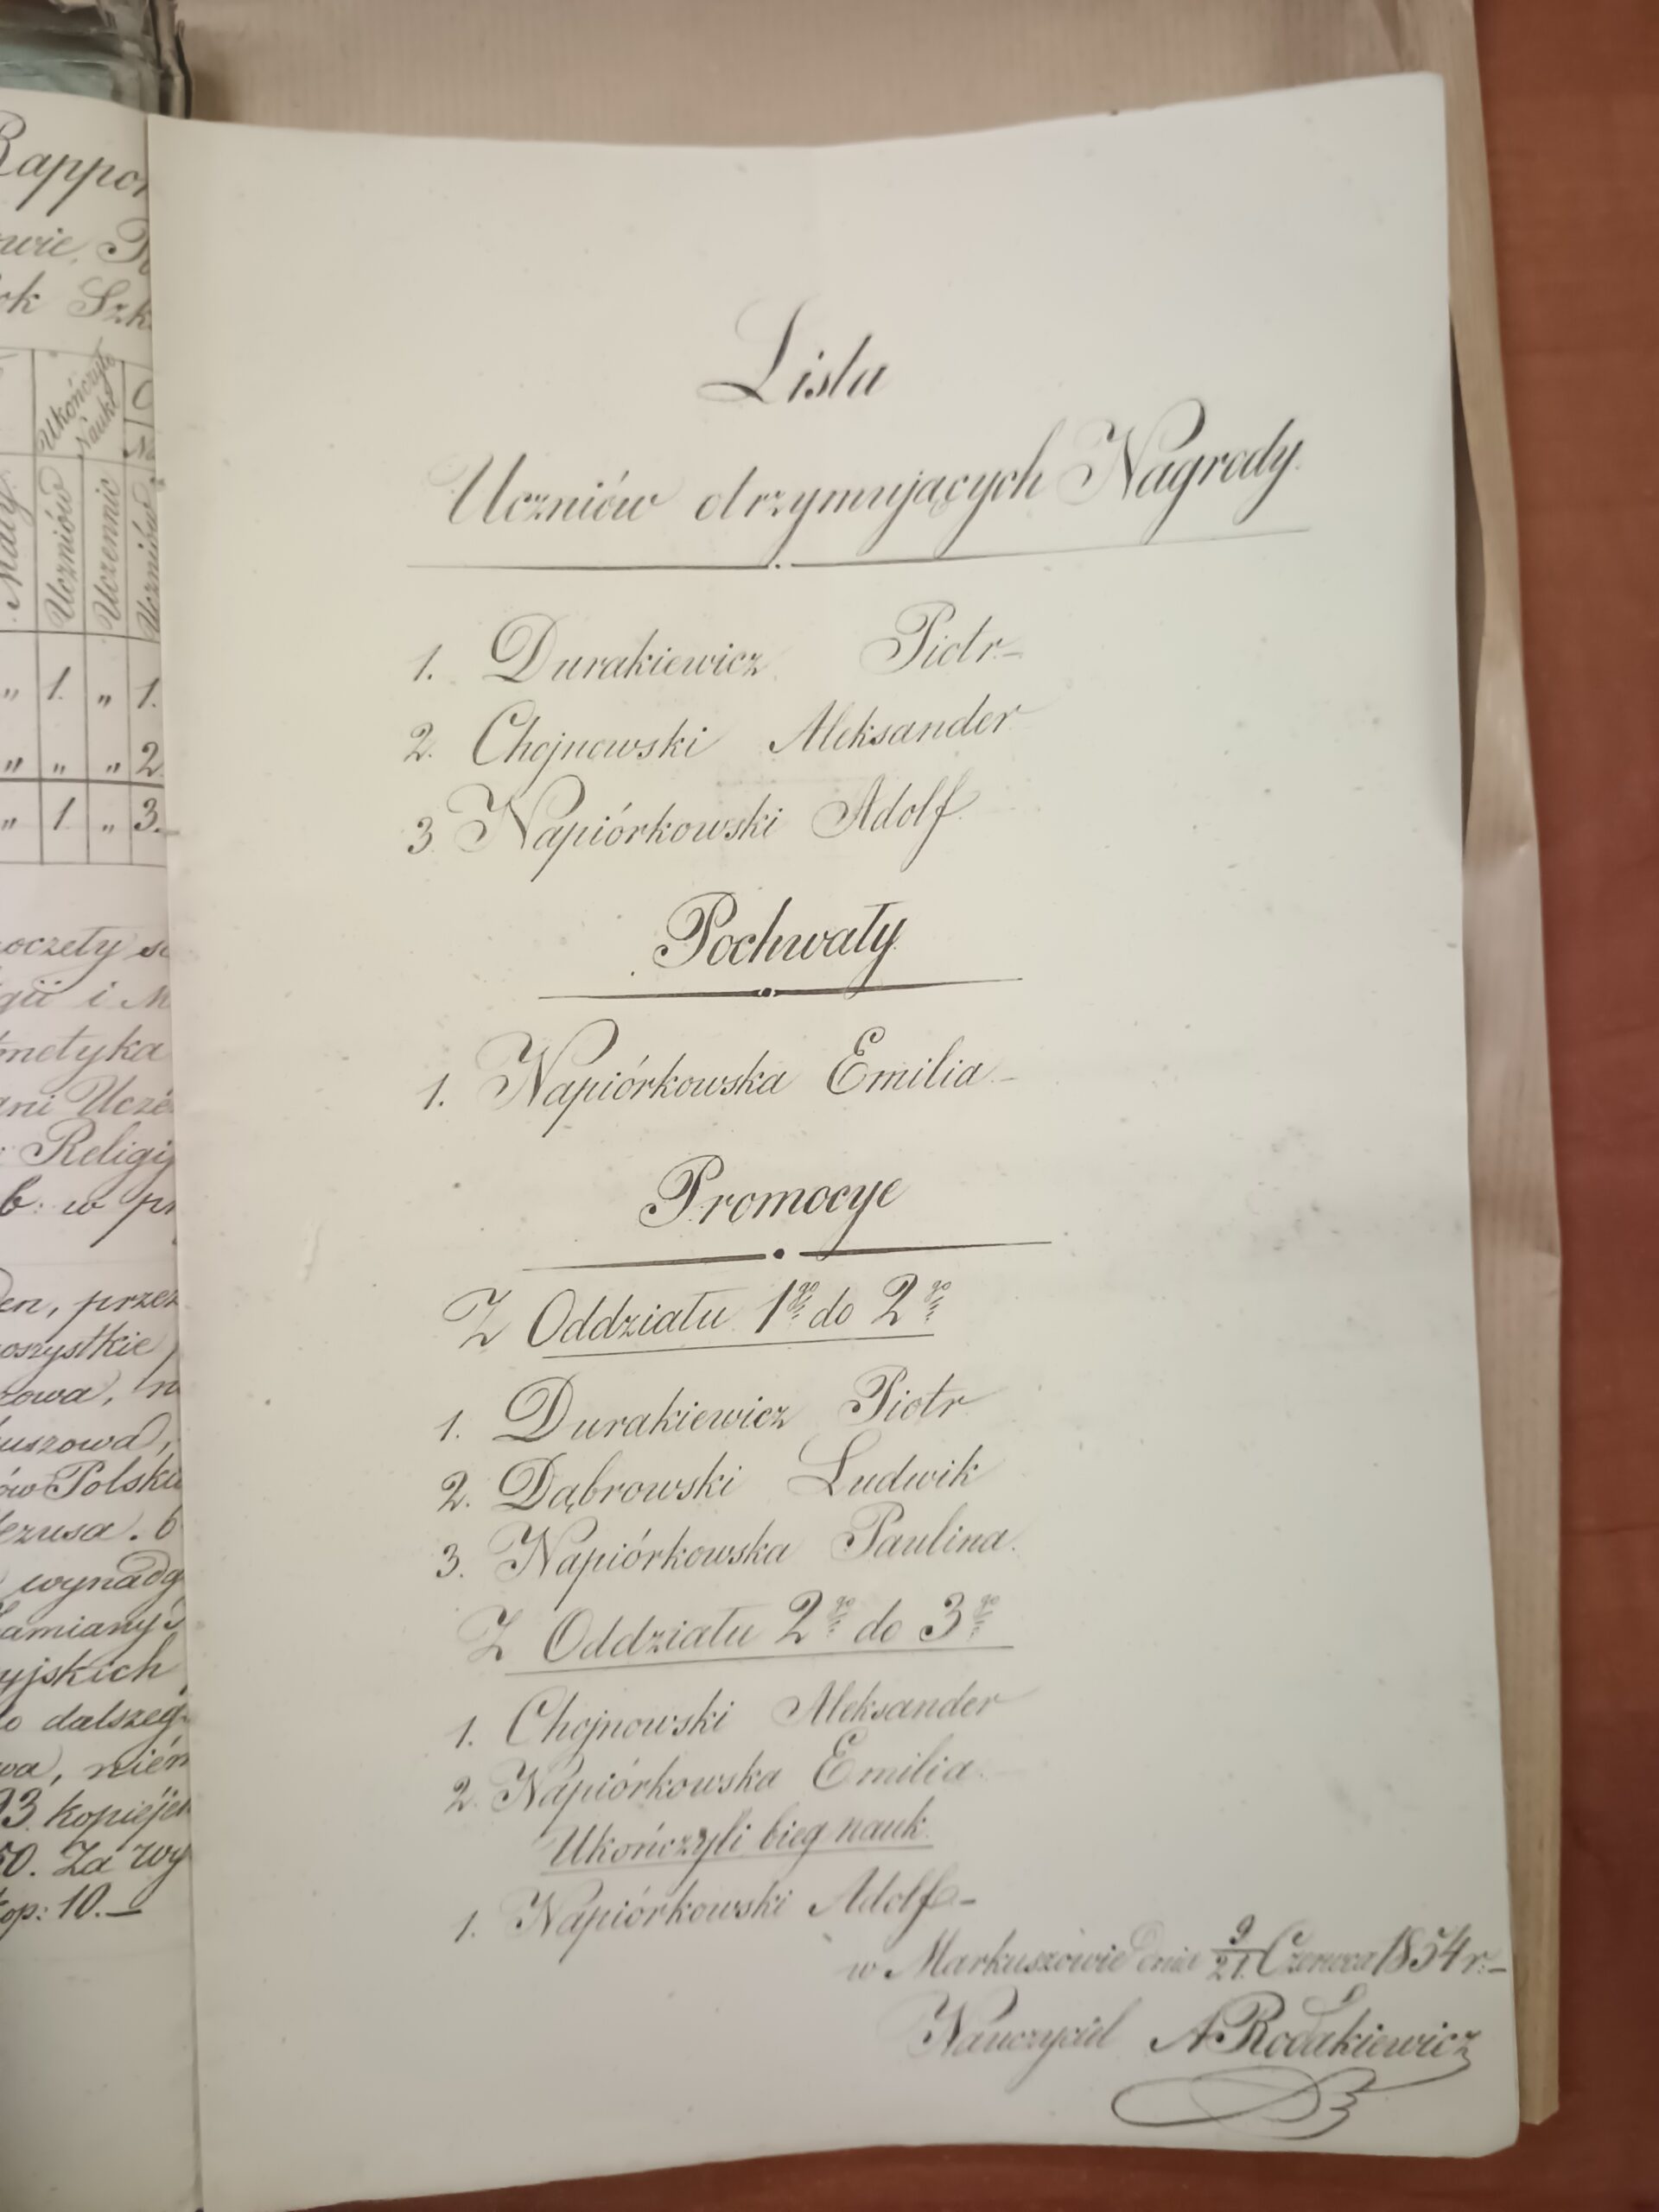 Rappor
wie, R
ok Szk
Ukończyło Nauki
Mały.
Uczniów
Uczennic
Uczniów
„ 1. „ 1.
„ „ „ 2.
„ 1 „ 3.
oczęły
gii i M
metyka
ani Uczę
: Religij
b: w pr
en, przez
wszystkie
zowa, n
uszowa,
ów Polsk
ezusa. 6
wynadg
amiany
yjskich
o dalszeg
wa, nién
93 kopiejek
50. Za wy
kop: 10. —
Lista
Uczniów otrzymujących Nagrody.
1. Durakiewicz Piotr –
2. Chojnowski Aleksander
3 Napiórkowski Adolf.
Pochwały
1. Napiórkowska Emilia –
Promocye
Z Oddziału 1go do 2go
1. Durakiewicz Piotr
2. Dąbrowski Ludwik
3. Napiórkowska Paulina.
Z Oddziału 2go do 3go
1. Chojnowski Aleksander
2. Napiórkowska Emilia.
Ukończyli bieg nauk.
1. Napiórkowski Adolf –
w Markuszowie dnia 9/21. Czerwca 1854 r. –
Nauczyciel A Rodakiewicz